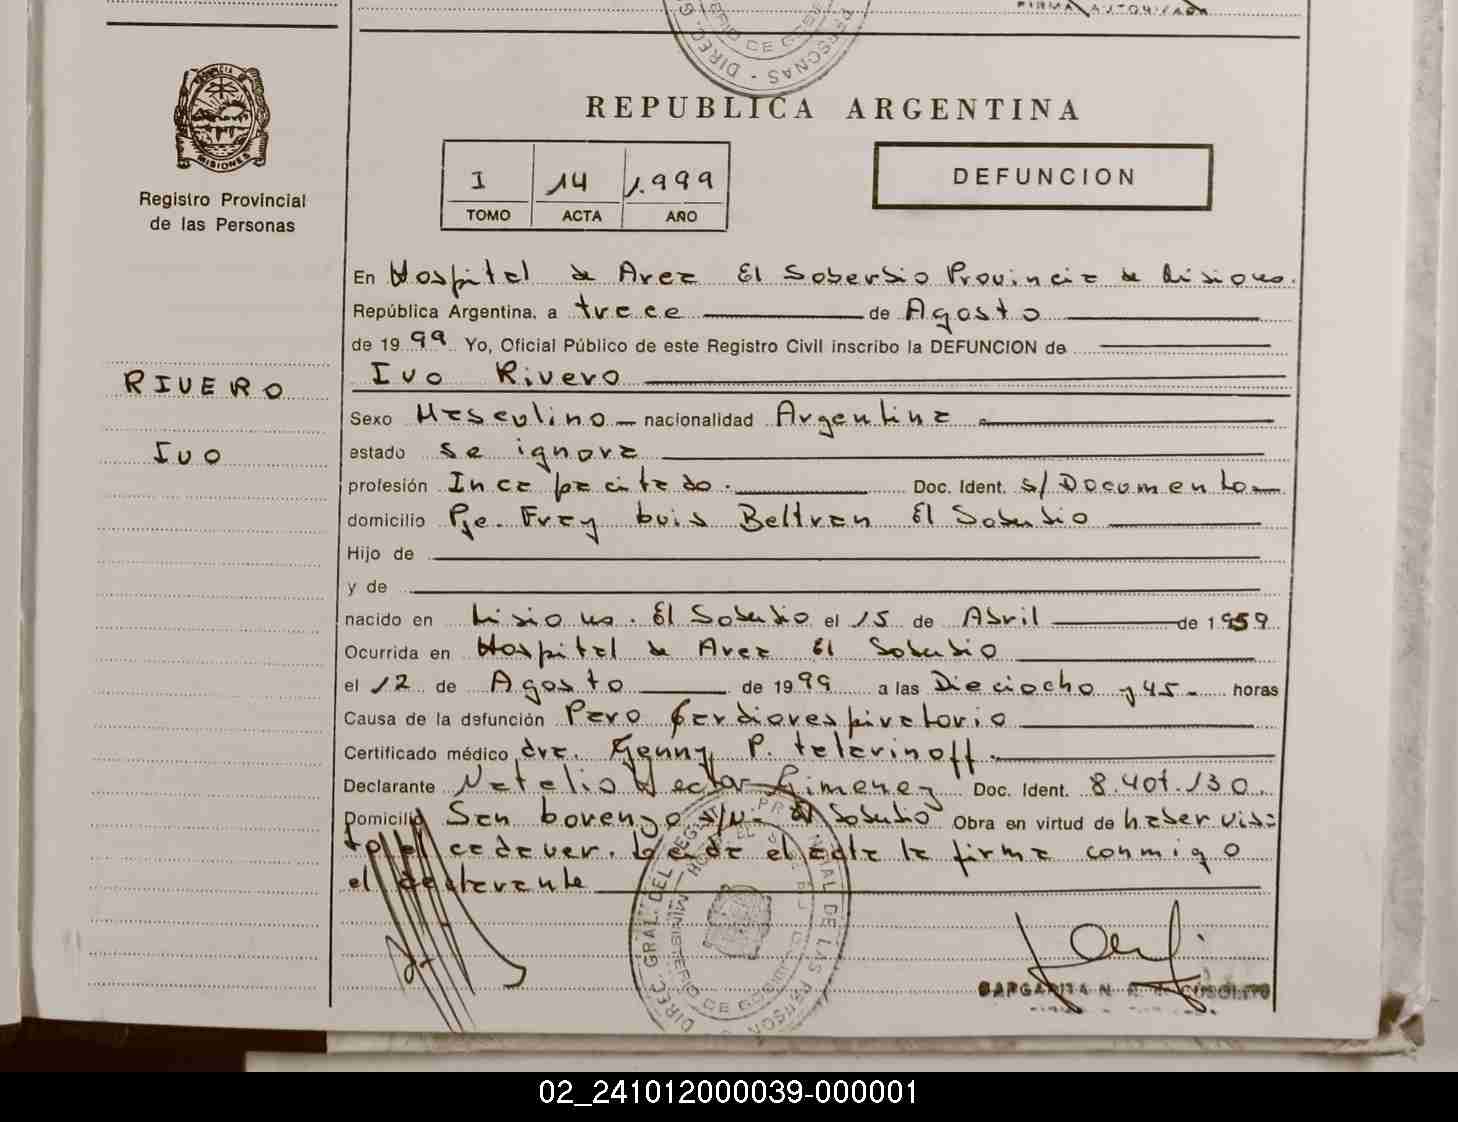 FIRMA AUTORIZADA
PROVINCIA DE
MISIONES
Registro Provincial
de las Personas
REPUBLICA ARGENTINA
I 14 1.999
TOMO ACTA AÑO
DEFUNCION
En Hospital de Area El Soberbio Provincia de Misiones.
República Argentina, a trece de Agosto
de 19 99 Yo, Oficial Público de este Registro Civil inscribo la DEFUNCION de
RIVERO
Ivo Rivero
Sexo Masculino nacionalidad Argentina
IVO
estado se ignora
profesión Incapacitado. Doc. Ident. s/Documento
domicilio Pje. Fray Luis Beltran El Soberbio
Hijo de
y de
nacido en Misiones. El Soberbio el 15 de Abril de 1959
Ocurrida en Hospital de Area El Soberbio
el 12 de Agosto de 1999 a las Dieciocho y 45 horas
Causa de la defunción Paro Cardiorespiratorio
Certificado médico dra. Genny P.
Declarante Natalio Hector Gimenez Doc. Ident. 8.401.130.
Domicilio San Lorenzo s/N- El Soberbio Obra en virtud de haber vis=
to el cadaver. Leida el acta la firma conmigo
el declarante
DIREC. GRAL. DEL REGISTRO PROVINCIAL DE LAS PERSONAS
MINISTERIO DE GOBIERNO
MARGARITA N.
02_241012000039-000001